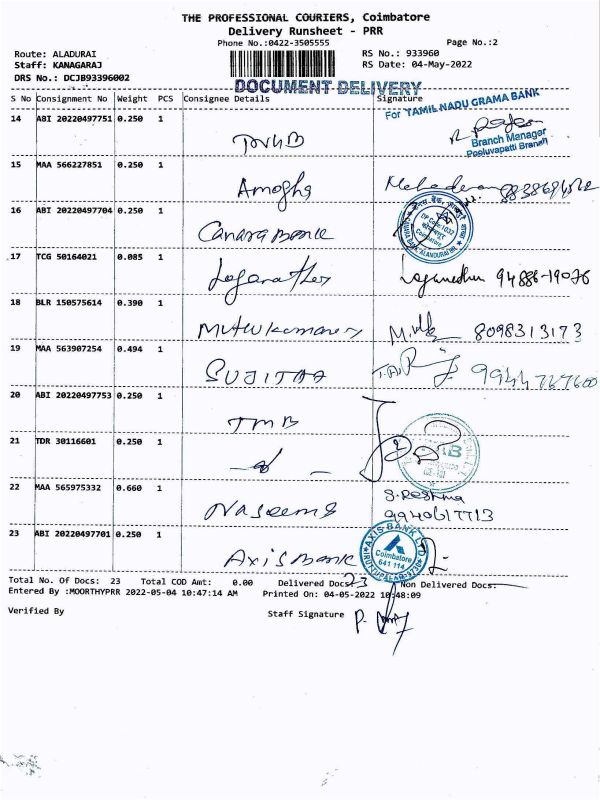 THE PROFESSIONAL COURIERS, Coimbatore
Delivery Runsheet - PRR
Phone No.:0422-3505555 Page No.:2
Route: ALADURAI RS No.: 933960
Staff: KANAGARAJ RS Date: 04-May-2022
DRS No.: DCJB93396002
DOCUMENT DELIVERY
S No Consignment No Weight PCS Consignee Details Signature
For TAMIL NADU GRAMA BANK
14 ABI 20220497751 0.250 1
Branch Manager
Pooluvapatti Branch
15 MAA 566227851 0.250 1
Amogha
16 ABI 20220497704 0.250 1
Canara Bank
17 TCG 50164021 0.085 1
Loganathan 94886-19076
18 BLR 150575614 0.390 1
Muthukumar 8098313173
19 MAA 563907254 0.494 1
SUJITAA
20 ABI 20220497753 0.250 1
TMB
21 TDR 30116601 0.250 1
22 MAA 565975332 0.660 1
Naseema S.Reshma
9940617713
23 ABI 20220497701 0.250 1
Axis Bank AXIS BANK LTD
Coimbatore
641 114
Total No. Of Docs: 23 Total COD Amt: 0.00 Delivered Docs: 23 Non Delivered Docs:
Entered By :MOORTHYPRR 2022-05-04 10:47:14 AM Printed On: 04-05-2022 10:48:09
Verified By Staff Signature